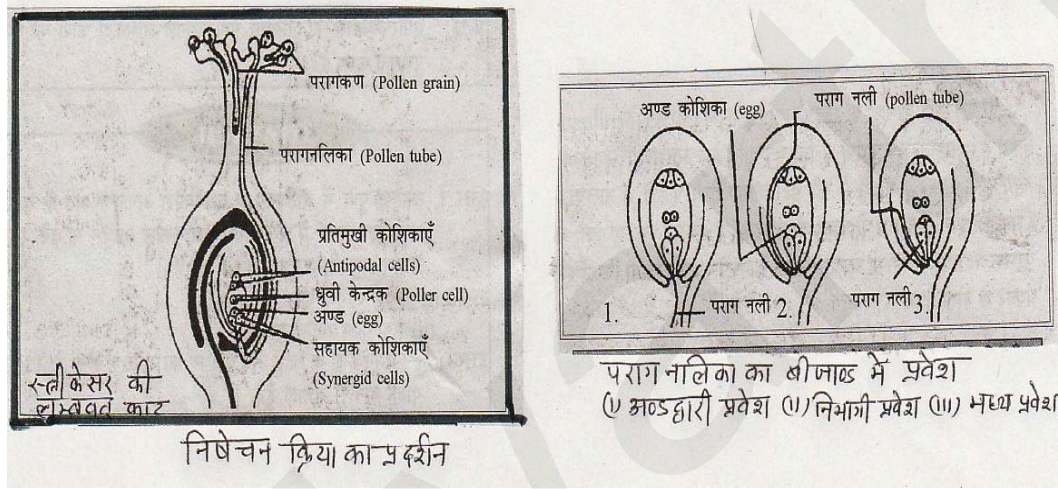 परागकण (Pollen grain)
परागनलिका (Pollen tube)
प्रतिमुखी कोशिकाएँ
(Antipodal cells)
ध्रुवी केन्द्रक (Poller cell)
अण्ड (egg)
सहायक कोशिकाएँ
(Synergid cells)
स्त्रीकेसर की
लम्बवत काट
निषेचन क्रिया का प्रदर्शन
अण्ड कोशिका (egg)
पराग नली (pollen tube)
1.
पराग नली 2.
पराग नली 3.
पराग नलिका का बीजाण्ड में प्रवेश
(I) अण्डद्वारी प्रवेश (II) निभागी प्रवेश (III) मध्य प्रवेश